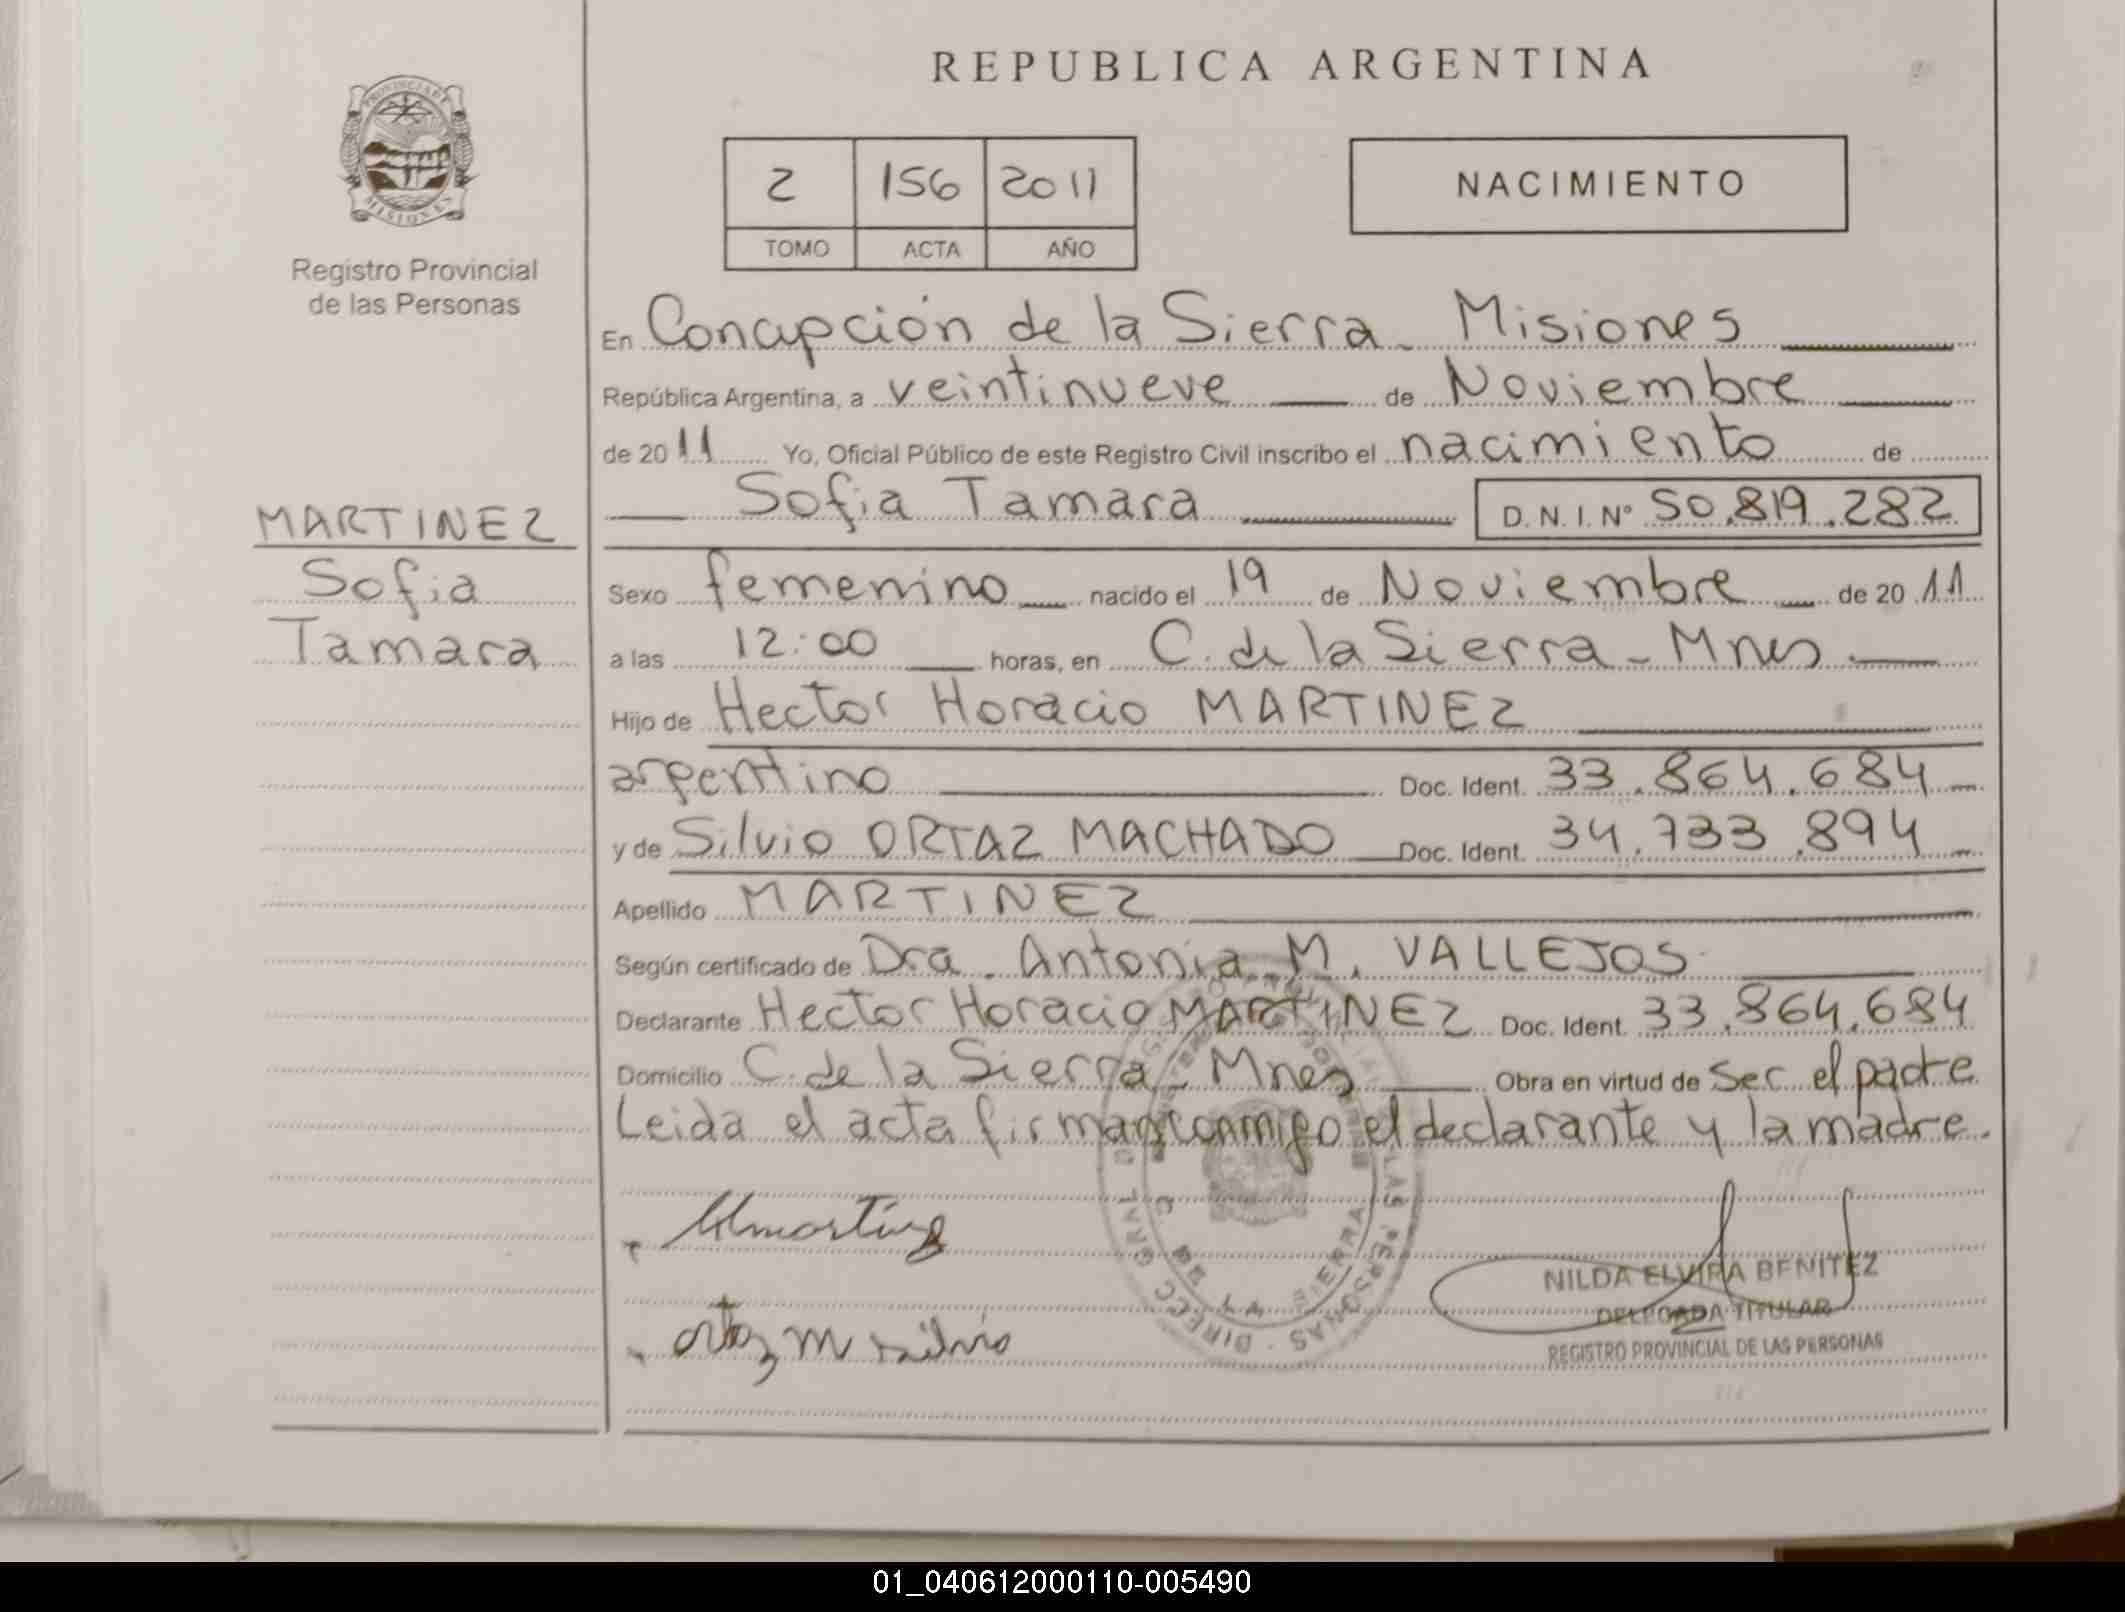 REPUBLICA ARGENTINA
PROVINCIA DE
MISIONES
Registro Provincial
de las Personas
2 156 2011
TOMO ACTA AÑO
NACIMIENTO
En Concepción de la Sierra - Misiones
República Argentina, a veintinueve de Noviembre
de 2011 Yo, Oficial Público de este Registro Civil inscribo el nacimiento de
Sofia Tamara D. N. I. N° 50.819.282
MARTINEZ
Sofia
Tamara
Sexo femenino nacido el 19 de Noviembre de 2011
a las 12:00 horas, en C. de la Sierra - Mnes
Hijo de Hector Horacio MARTINEZ
argentino Doc. Ident. 33.864.684
y de Silvio ORTAZ MACHADO Doc. Ident. 34.733.894
Apellido MARTINEZ
Según certificado de Dra. Antonia M. VALLEJOS
Declarante Hector Horacio MARTINEZ Doc. Ident. 33.864.684
Domicilio C. de la Sierra - Mnes Obra en virtud de ser el padre
Leida el acta firman conmigo el declarante y la madre.
NILDA ELVIRA BENITEZ
DELEGADA TITULAR
REGISTRO PROVINCIAL DE LAS PERSONAS
ortaz m silvio
01_040612000110-005490